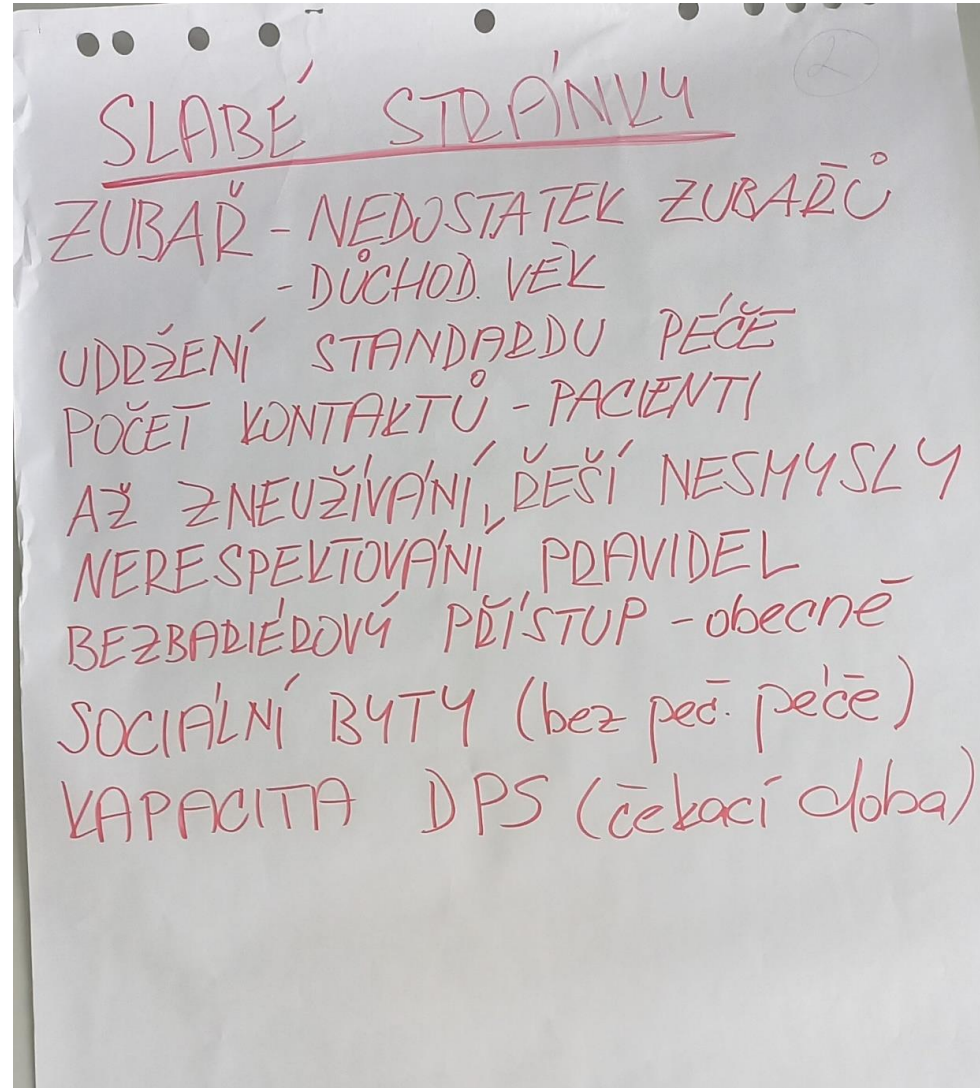 2
SLABÉ STRÁNKY
ZUBAŘ - NEDOSTATEK ZUBAŘŮ
- DŮCHOD. VĚK
UDRŽENÍ STANDARDU PÉČE
POČET KONTAKTŮ - PACIENTI
AŽ ZNEUŽÍVÁNÍ, ŘEŠÍ NESMYSLY
NERESPEKTOVÁNÍ PRAVIDEL
BEZBARIÉROVÝ PŘÍSTUP - obecně
SOCIÁLNÍ BYTY (bez peč. péče)
KAPACITA DPS (čekací doba)